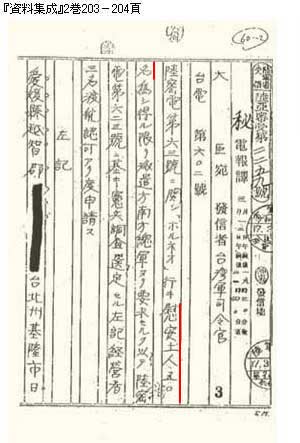 『資料集成』2巻203－204頁
60-2
秘 電報譯
大臣宛 發信者 台湾軍司令官
3
台電 第六〇二號
陸密電第六三號ニ関シ「ボルネオ」行キ慰安土人五〇
名為シ得ル限リ派遣方南方總軍ヨリ要求セルヲ以テ陸密
電第六二三號ニ基キ憲兵調査選定セル左記経営者
三名渡航認可アリ度申請ス
左記
愛媛縣越智郡 台北州基隆市日